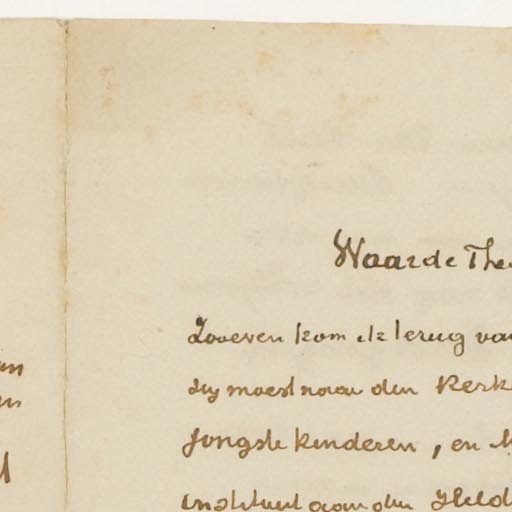 Waarde Theo
Zooeven kom ik terug van
zij moest naar den Kerk
jongste kinderen, en
instituut aan den Held